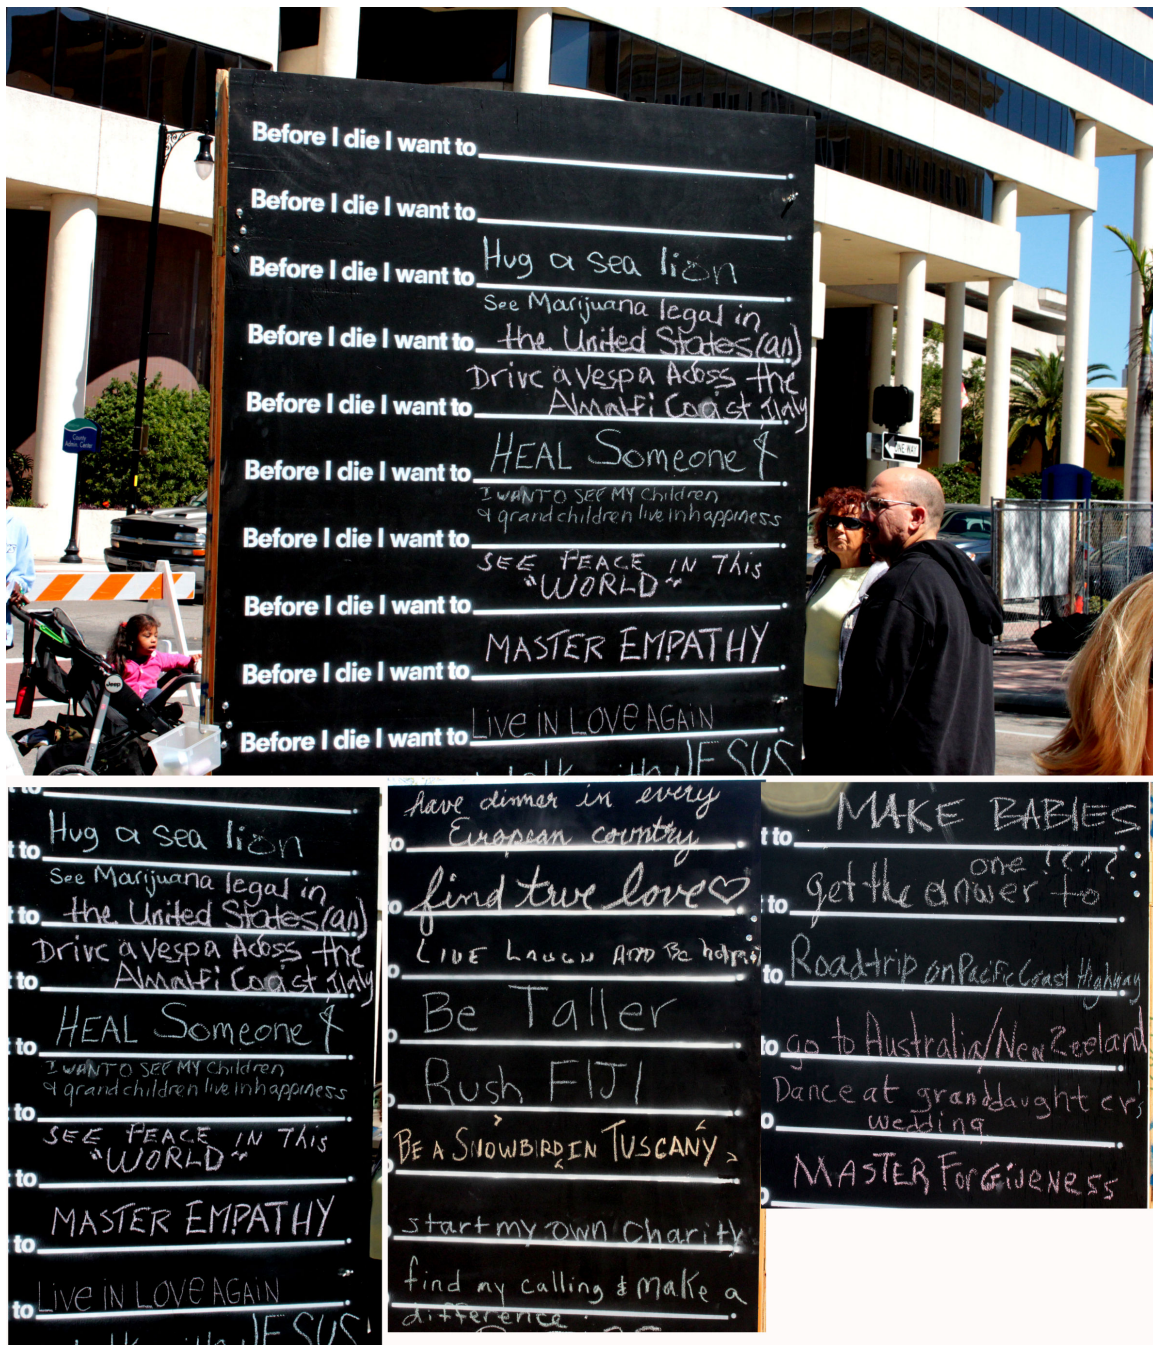 Before I die I want to
Before I die I want to
Before I die I want to Hug a sea lion
See Marijuana legal in
Before I die I want to the United States (an)
Drive a vespa Acoss the
Before I die I want to Amalfi Coast Italy
Before I die I want to HEAL Someone
I WANT O SEE MY Children
& grandchildren live in happiness
Before I die I want to
SEE PEACE IN This
Before I die I want to "WORLD"
Before I die I want to MASTER EMPATHY
Before I die I want to LIVE IN LOVE AGAIN
talk with JESUS
County
Admin. Center
ONE WAY
Jeep
to
to Hug a sea lion
See Marijuana legal in
to the United States (an)
Drive a vespa Acoss the
to Amalfi Coast Italy
to HEAL Someone
I WANT O SEE MY Children
& grandchildren live in happiness
to
SEE PEACE IN This
to "WORLD"
to MASTER EMPATHY
to LIVE IN LOVE AGAIN
talk with JESUS
have dinner in every
European country
find true love
LIVE LAUGH AND Be
Be Taller
Rush FIJI
BE A SNOWBIRD IN TUSCANY
start my own Charity
find my calling & make a
difference
t to MAKE BABIES
one !???
to get the answer to
to Roadtrip on Pacific Coast Highway
to go to Australia/New Zeeland
Dance at granddaughter's
wedding
MASTER ForGiveNess